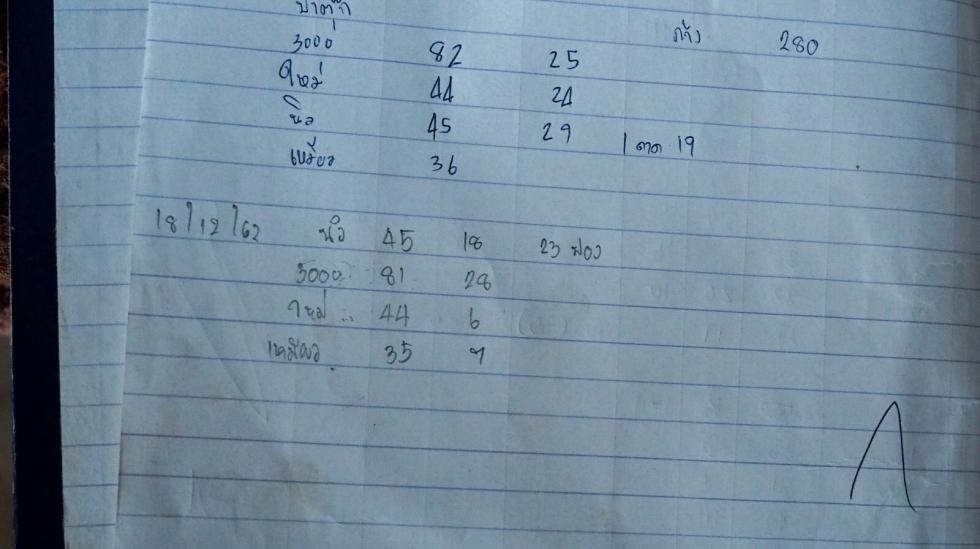 ป้าตุ๊ก
3000 82 25 ค้าง 280
ใหม่ 44 24
นิว 45 29 1 ถาด 19
เหมียว 36
18/12/62 นิว 45 18 23 ฟอง
3000 81 28
ใหม่ .. 44 6
เหมียว 35 9